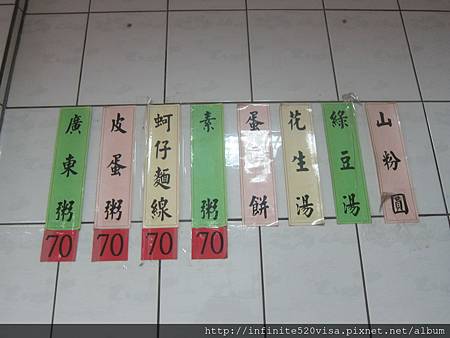 廣東粥 70
皮蛋粥 70
蚵仔麵線 70
素粥 70
蛋餅
花生湯
綠豆湯
山粉圓
http://infinite520visa.pixnet.net/album